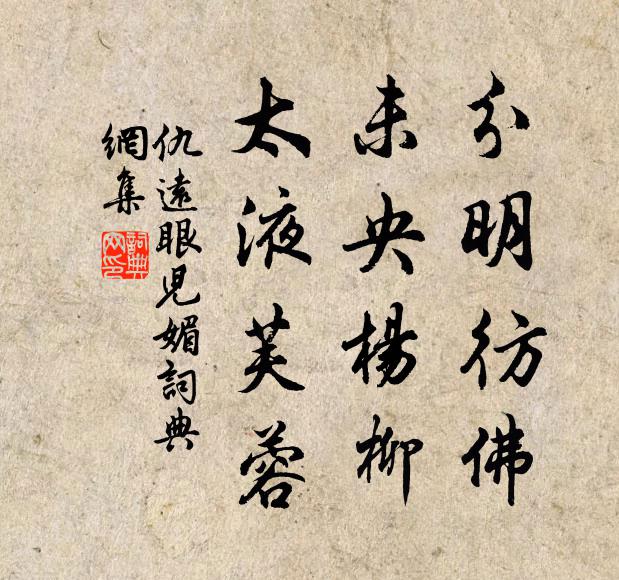 分明彷佛
未央楊柳
太液芙蓉
仇遠眼児媚詞典
網集
詞典網印